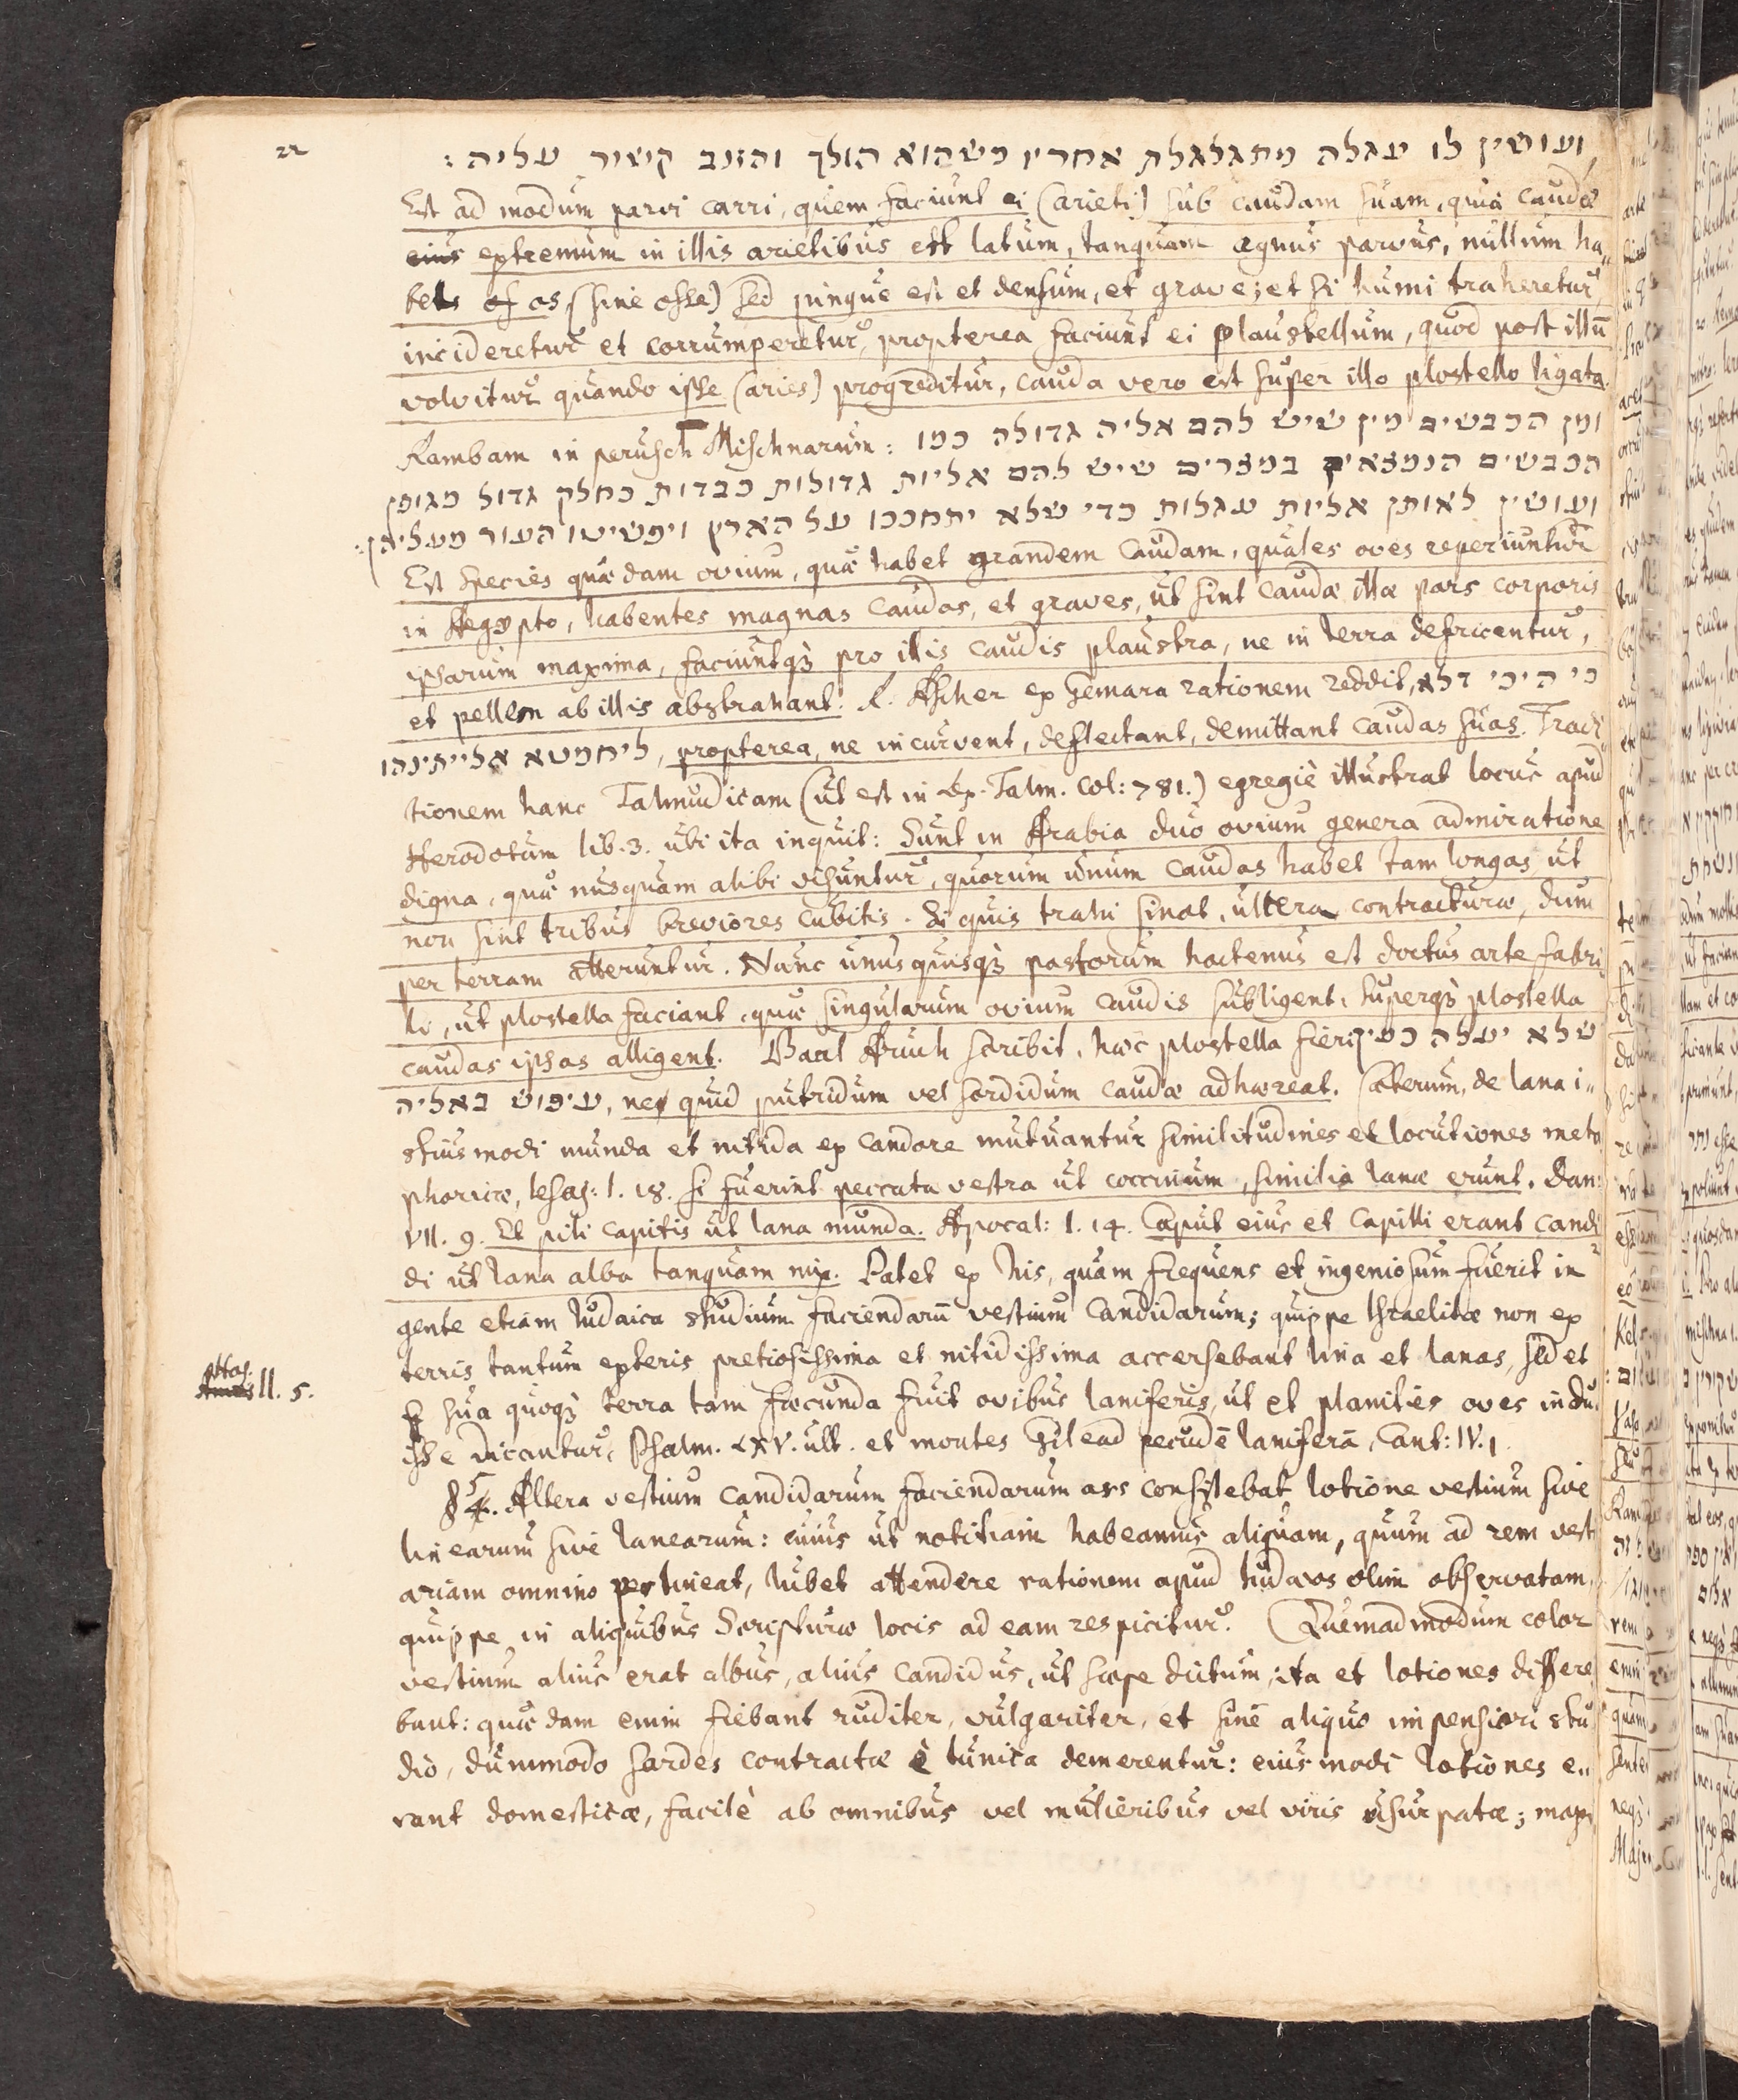 22
ועושין לו עגלה מתגלגלת אחריו כשהוא הולך והזנב קשור עליה :
Est ad modum parvi carri, quem faciunt ei (arieti) sub caudam suam, quia caudæ
eius extremum in illis arietibus est latum, tanquam agnus parvus, nullum ha„
bet os (sine osse) sed pingue est et densum, et grave; et si humi traheretur,
incideretur et corrumperetur, propterea faciunt ei plaustellum, quod post illū
volvitur quando ipse (aries) progreditur, cauda vero est super illo plostello ligata.
Rambam in perusch Mischnarum : ומן הכבשים מין שיש להם אליה גדולה כמו
הכבשים הנמצאים במצרים שיש להם אליות גדולות כבדות כחלק גדול מגופן
ועושין לאותן אליות עגלות כדי שלא יתחככו על הארץ ויפשיטו העור מעליהן:
Est species quædam ovium, quæ habet grandem caudam, quales oves reperiuntur
in Aegypto, habentes magnas caudas, et graves, ut sint caudæ illæ pars corporis
ipsarum maxima, faciuntqȝ pro illis caudis plaustra, ne in terra defricentur,
et pellem ab illis abstrahant. R. Ascher ex Gemara rationem reddit, כי היכי דלא
ליחמטא אלייתיהו, propterea, ne incurvent, deflectant, demittant caudas suas. Tradi
tionem hanc Talmudicam (ut est in Lex. Talm. Col: 781.) egregiè illustrat locus apud
Herodotum lib. 3. ubi ita inquit: Sunt in Arabia duo ovium genera admiratione
digna, quæ nusquam alibi visuntur, quorum unum caudas habet tam longas, ut
non sint tribus breviores cubitis. Si quis trahi sinat, ulcera contracturæ, dum
per terram atteruntur. Nunc unusquisqȝ pastorum hactenus est doctus arte fabri
li, ut plostella faciant, quæ singularum ovium caudis subligent, superqȝ plostella
caudas ipsas alligent. Baal Aruch scribit, hæc plostella fieri שלא יעלה כמין
עיפוש באליה, ne quid putridum vel sordidum caudæ adhæreat. Cæterum, de lana i„
stiusmodi munda et nitida ex candore mutuantur similitudines et locutiones meta
phoricæ, Iesaj: 1. 18. si fuerint peccata vestra ut coccinum, similia lanæ erunt. Dan:
VII. 9. Et pili capitis ut lana munda. Apocal: 1. 14. Caput eius et capilli erant candi
di ut lana alba tanquam nix. Patet ex his, quam frequens et ingeniosum fuerit in
gente etiam Iudaica studium faciendarū vestium candidarum; quippe Israelitæ non ex
terris tantum exteris pretiosissima et nitidissima accersebant lina et lanas, sed et
II. 5.
sua quoqȝ terra tam fœcunda fuit ovibus laniferis, ut et planities oves indu
isse dicantur, Psalm. LXV. ult. et montes Gilead pecudē laniferā, Cant: IV. 1
§ 5. Altera vestium candidarum faciendarum ars consistebat lotione vestium sive
linearum sive lanearum: cuius ut notitiam habeamus aliquam, quum ad rem vesti
ariam omnino pertineat, lubet attendere rationem apud Iudæos olim observatam,
quippe in aliquibus Scripturæ locis ad eam respicitur. Quemadmodum color
vestium alius erat albus, alius candidus, ut sæpe dictum, ita et lotiones differe
bant: quædam enim fiebant ruditer, vulgariter, et sine aliquo impensiori stu
dio, dummodo sordes contractæ è tunica demerentur: eiusmodi lotiones e„
rant domesticæ, facilè ab omnibus vel mulieribus vel viris usurpatæ; maxi